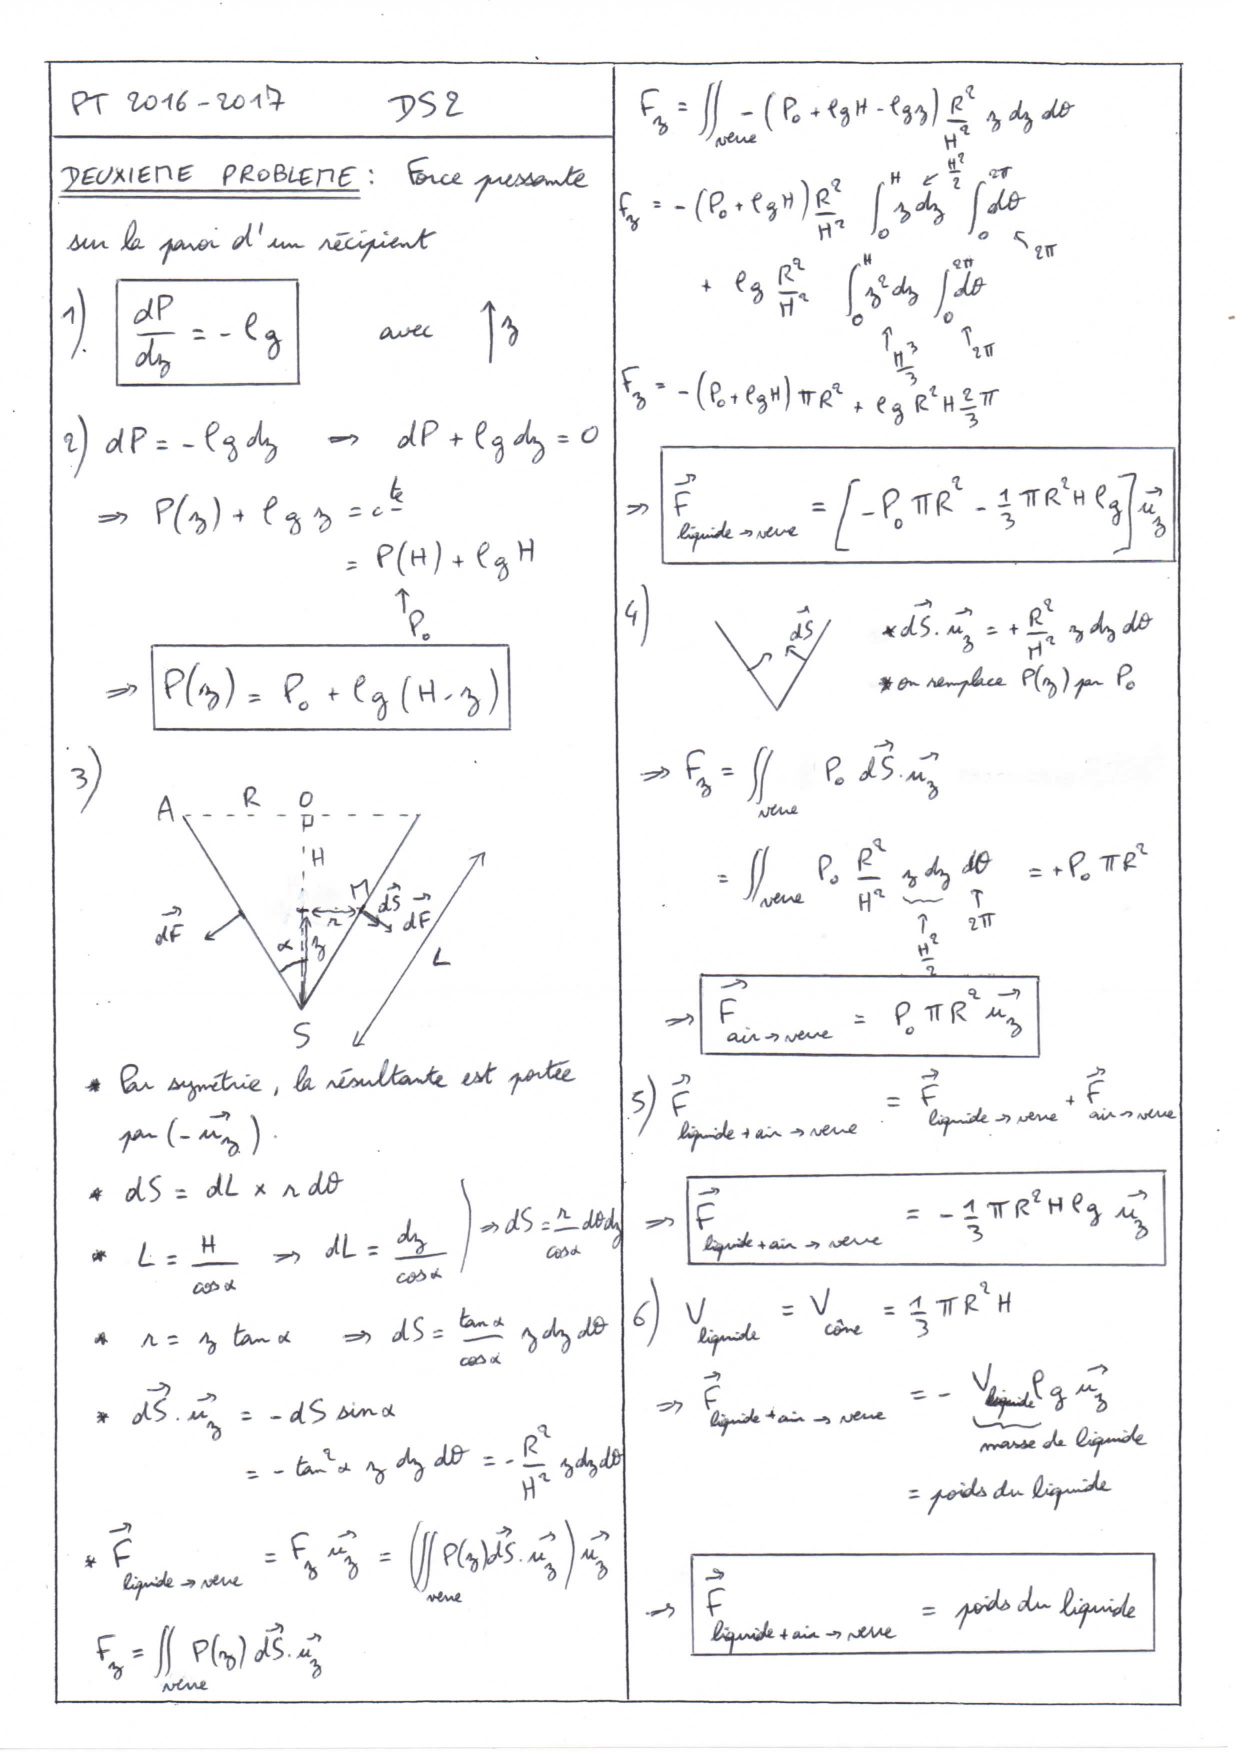 PT 2016-2017 DS2
DEUXIEME PROBLEME : Force pressante
sur la paroi d'un récipient
1) dP/dz = - ρg avec ↑z
2) dP = - ρg dz ⇒ dP + ρg dz = 0
⇒ P(z) + ρg z = cte
= P(H) + ρg H
↑
P₀
⇒ P(z) = P₀ + ρg (H - z)
3)
A R O
H
M
dS⃗
dF⃗ r dF⃗
α z
L
S
* Par symétrie, la résultante est portée
par (-u⃗z).
* dS = dL × r dθ
* L = H/cosα ⇒ dL = dz/cosα ⇒ dS = r/cosα dθdz
* r = z tanα ⇒ dS = tanα/cosα z dz dθ
* dS⃗.u⃗z = - dS sinα
= - tan²α z dz dθ = - R²/H² z dz dθ
* F⃗ liquide→verre = Fz u⃗z = (∬verre P(z) dS⃗.u⃗z) u⃗z
Fz = ∬verre P(z) dS⃗.u⃗z
Fz = ∬verre - (P₀ + ρgH - ρgz) R²/H² z dz dθ
Fz = - (P₀ + ρgH) R²/H² ∫₀^H z dz ↙ H²/2 ∫₀^2π dθ ↖ 2π
+ ρg R²/H² ∫₀^H z² dz ∫₀^2π dθ
↑ H³/3 ↑ 2π
Fz = - (P₀ + ρgH) πR² + ρg R²H 2/3 π
⇒ F⃗ liquide→verre = [-P₀ πR² - 1/3 πR²H ρg] u⃗z
4) dS⃗ * dS⃗.u⃗z = + R²/H² z dz dθ
* on remplace P(z) par P₀
⇒ Fz = ∬verre P₀ dS⃗.u⃗z
= ∬verre P₀ R²/H² z dz dθ = + P₀ πR²
↑ H²/2 ↑ 2π
⇒ F⃗ air→verre = P₀ πR² u⃗z
5) F⃗ liquide+air→verre = F⃗ liquide→verre + F⃗ air→verre
⇒ F⃗ liquide+air→verre = - 1/3 πR²Hρg u⃗z
6) V liquide = V cône = 1/3 πR²H
⇒ F⃗ liquide+air→verre = - V liquide ρ g u⃗z
masse de liquide
= poids du liquide
⇒ F⃗ liquide+air→verre = poids du liquide